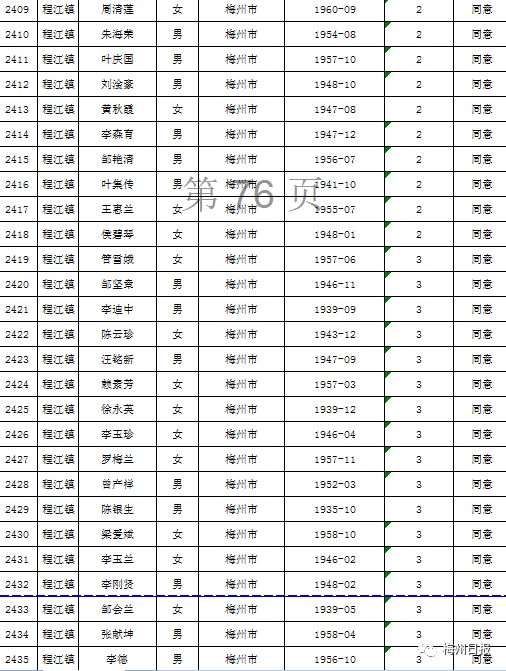 2409 程江镇 周清莲 女 梅州市 1960-09 2 同意
2410 程江镇 朱海荣 男 梅州市 1954-08 2 同意
2411 程江镇 叶庆国 男 梅州市 1957-10 2 同意
2412 程江镇 刘淦豪 男 梅州市 1948-10 2 同意
2413 程江镇 黄秋霞 女 梅州市 1947-08 2 同意
2414 程江镇 李淼育 男 梅州市 1947-12 2 同意
2415 程江镇 邹艳清 男 梅州市 1956-07 2 同意
2416 程江镇 叶集传 男 梅州市 1941-10 2 同意
第 76 页
2417 程江镇 王惠兰 女 梅州市 1955-07 2 同意
2418 程江镇 侯碧琴 女 梅州市 1948-01 2 同意
2419 程江镇 管雪娥 女 梅州市 1957-06 3 同意
2420 程江镇 邹坚章 男 梅州市 1946-11 3 同意
2421 程江镇 李迪中 男 梅州市 1939-09 3 同意
2422 程江镇 陈云珍 女 梅州市 1943-12 3 同意
2423 程江镇 汪铭新 男 梅州市 1947-09 3 同意
2424 程江镇 赖素芳 女 梅州市 1957-03 3 同意
2425 程江镇 徐永英 女 梅州市 1939-12 3 同意
2426 程江镇 李玉珍 女 梅州市 1946-04 3 同意
2427 程江镇 罗梅兰 女 梅州市 1957-11 3 同意
2428 程江镇 曾产祥 男 梅州市 1952-03 3 同意
2429 程江镇 陈银生 男 梅州市 1935-10 3 同意
2430 程江镇 梁爱斌 女 梅州市 1958-10 3 同意
2431 程江镇 李玉兰 女 梅州市 1946-02 3 同意
2432 程江镇 李刚贤 男 梅州市 1948-02 3 同意
2433 程江镇 邹会兰 女 梅州市 1939-05 3 同意
2434 程江镇 张献坤 男 梅州市 1958-04 3 同意
2435 程江镇 李德 男 梅州市 1956-10 3 同意
梅州日报